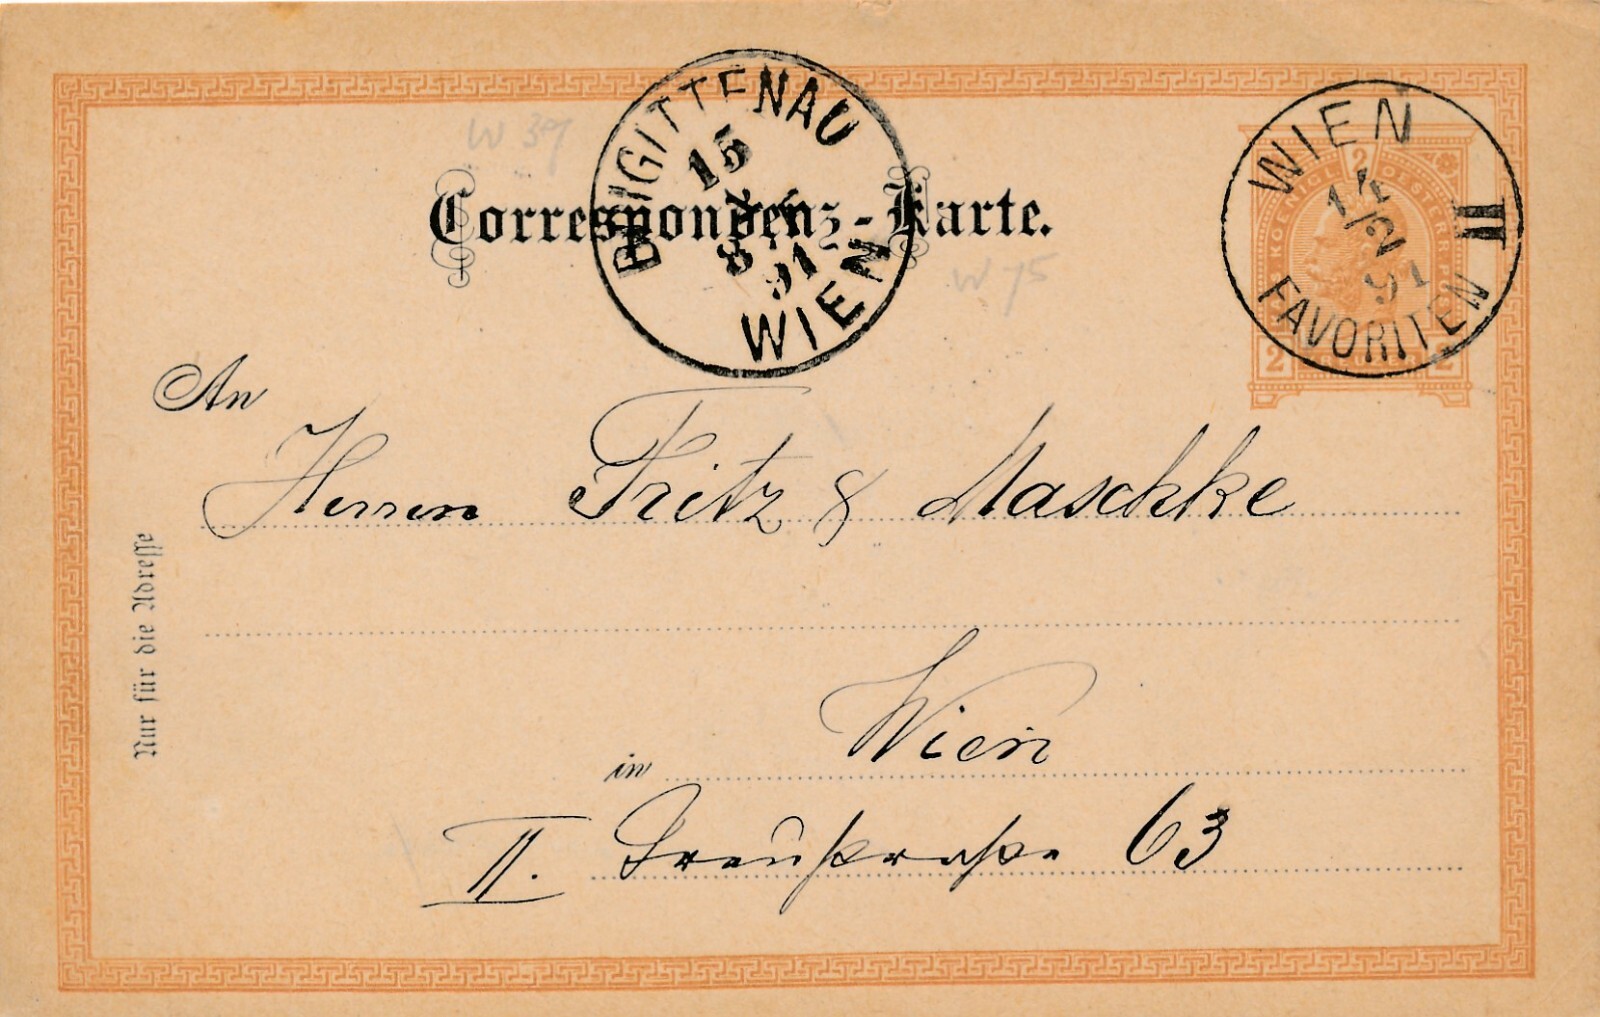 W 39
BRIGITTENAU
15
8
91
WIEN
Correspondenz-Karte.
W 75
WIEN
14/2
91
II
FAVORITEN
2
KAIS. KOENIGL. OESTERR.
2 2
An
Herren Fritz & Maschke
in Wien
II. 63
Nur für die Adresse